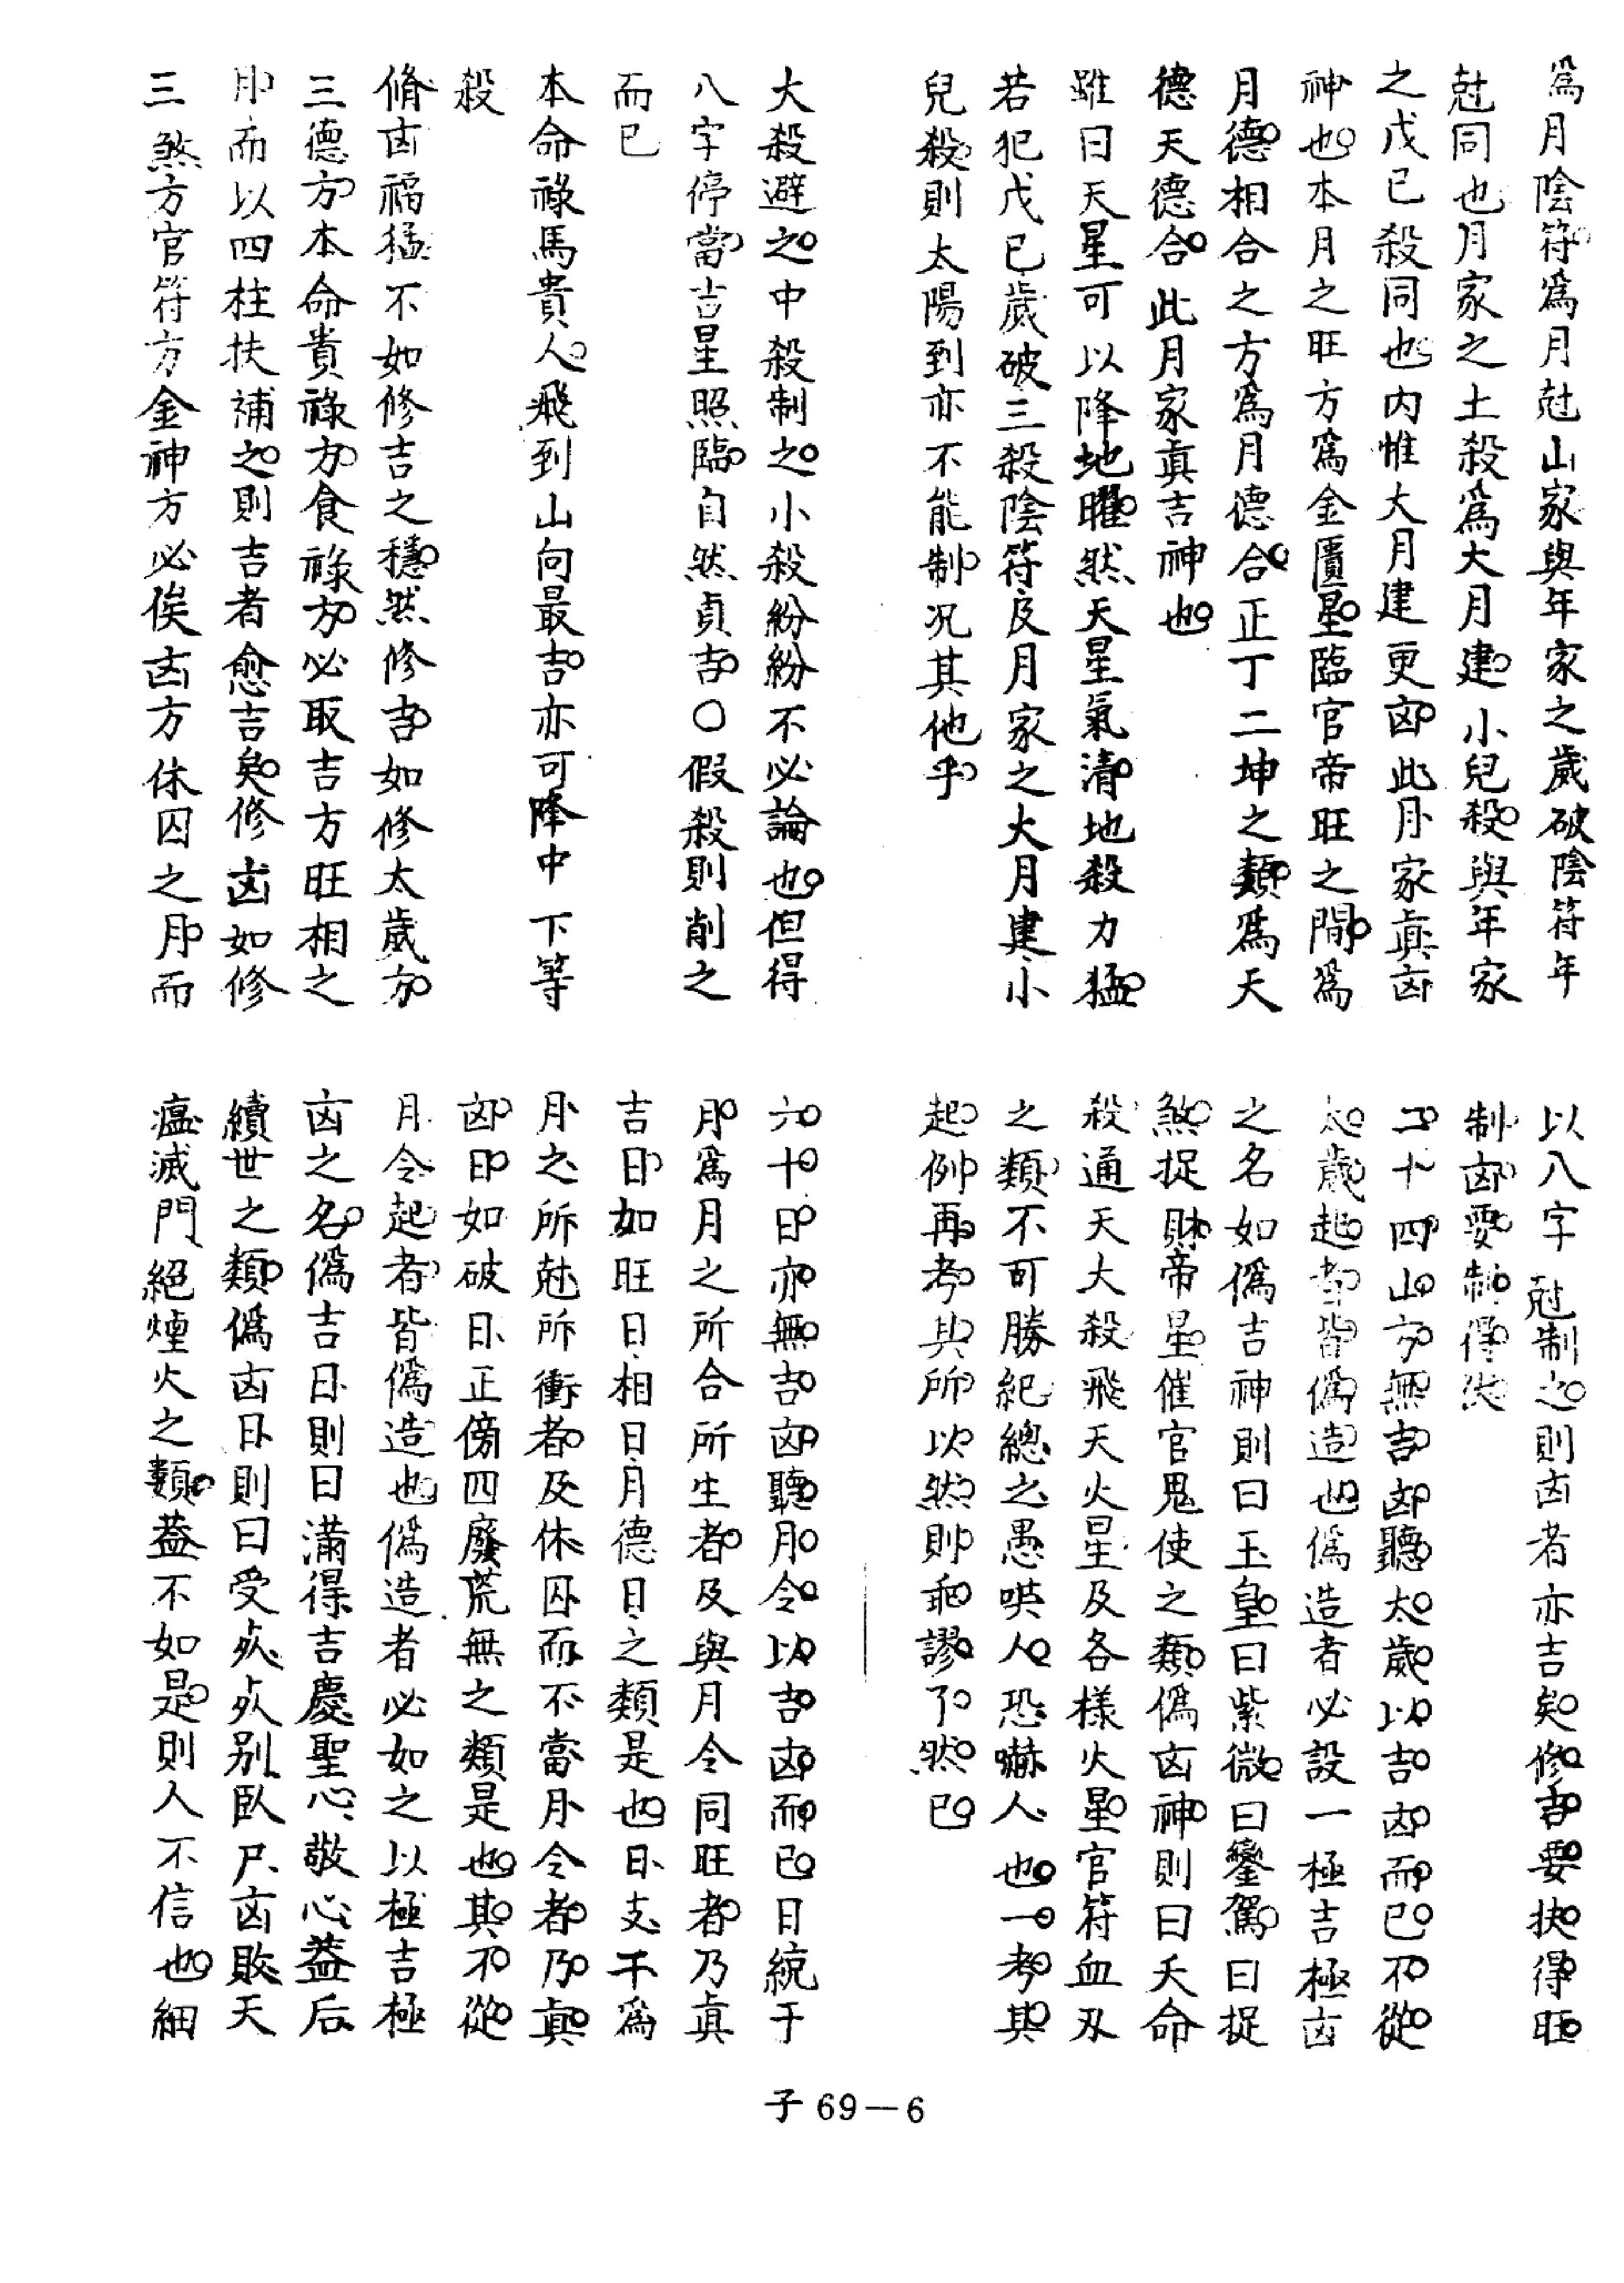 爲月陰符爲月尅山家與年家之歲破陰符年
尅同也月家之土殺爲大月建小兒殺與年家
之戊已殺同也内惟大月建更凶此月家眞凶
神也本月之旺方爲金匱星臨官帝旺之間爲
月德相合之方爲月德合正丁二坤之類爲天
德天德合此月家眞吉神也
雖曰天星可以降地曜然天星氣清地殺力猛
若犯戊已歲破三殺陰符及月家之大月建小
兒殺則太陽到亦不能制况其他乎
大殺避之中殺制之小殺紛紛不必論也但得
八字停當吉星照臨自然貞吉○假殺則削之
而已
本命祿馬貴人飛到山向最吉亦可降中下等
殺
脩凶福猛不如修吉之穩然修吉如修太歲方
三德方本命貴祿方食祿方必取吉方旺相之
月而以四柱扶補之則吉者愈吉矣修凶如修
三煞方官符方金神方必俟凶方休囚之月而
以八字尅制之則凶者亦吉矣修吉要扶得旺
制凶要制得伏
二十四山方無吉凶聽太歲以吉凶而已不從
太歲起者皆偽造也偽造者必設一極吉極凶
之名如偽吉神則曰玉皇曰紫微曰鑾駕曰捉
煞捉財帝星催官鬼使之類偽凶神則曰夭命
殺通天大殺飛天火星及各樣火星官符血刃
之類不可勝紀總之愚哄人恐嚇人也一考其
起例再考其所以然則乖謬了然已
六十日亦無吉凶聽月令以吉凶而已日統于
月爲月之所合所生者及與月令同旺者乃眞
吉日如旺日相日月德日之類是也日支干爲
月之所尅所衝者及休囚而不當月令者乃眞
凶日如破日正傍四廢荒蕪之類是也其不從
月令起者皆偽造也偽造者必如之以極吉極
凶之名偽吉日則曰滿得吉慶聖心敬心益后
續世之類偽凶日則曰受死死别臥尸凶敗天
瘟滅門絕煙火之類蓋不如是則人不信也細
子 69－6